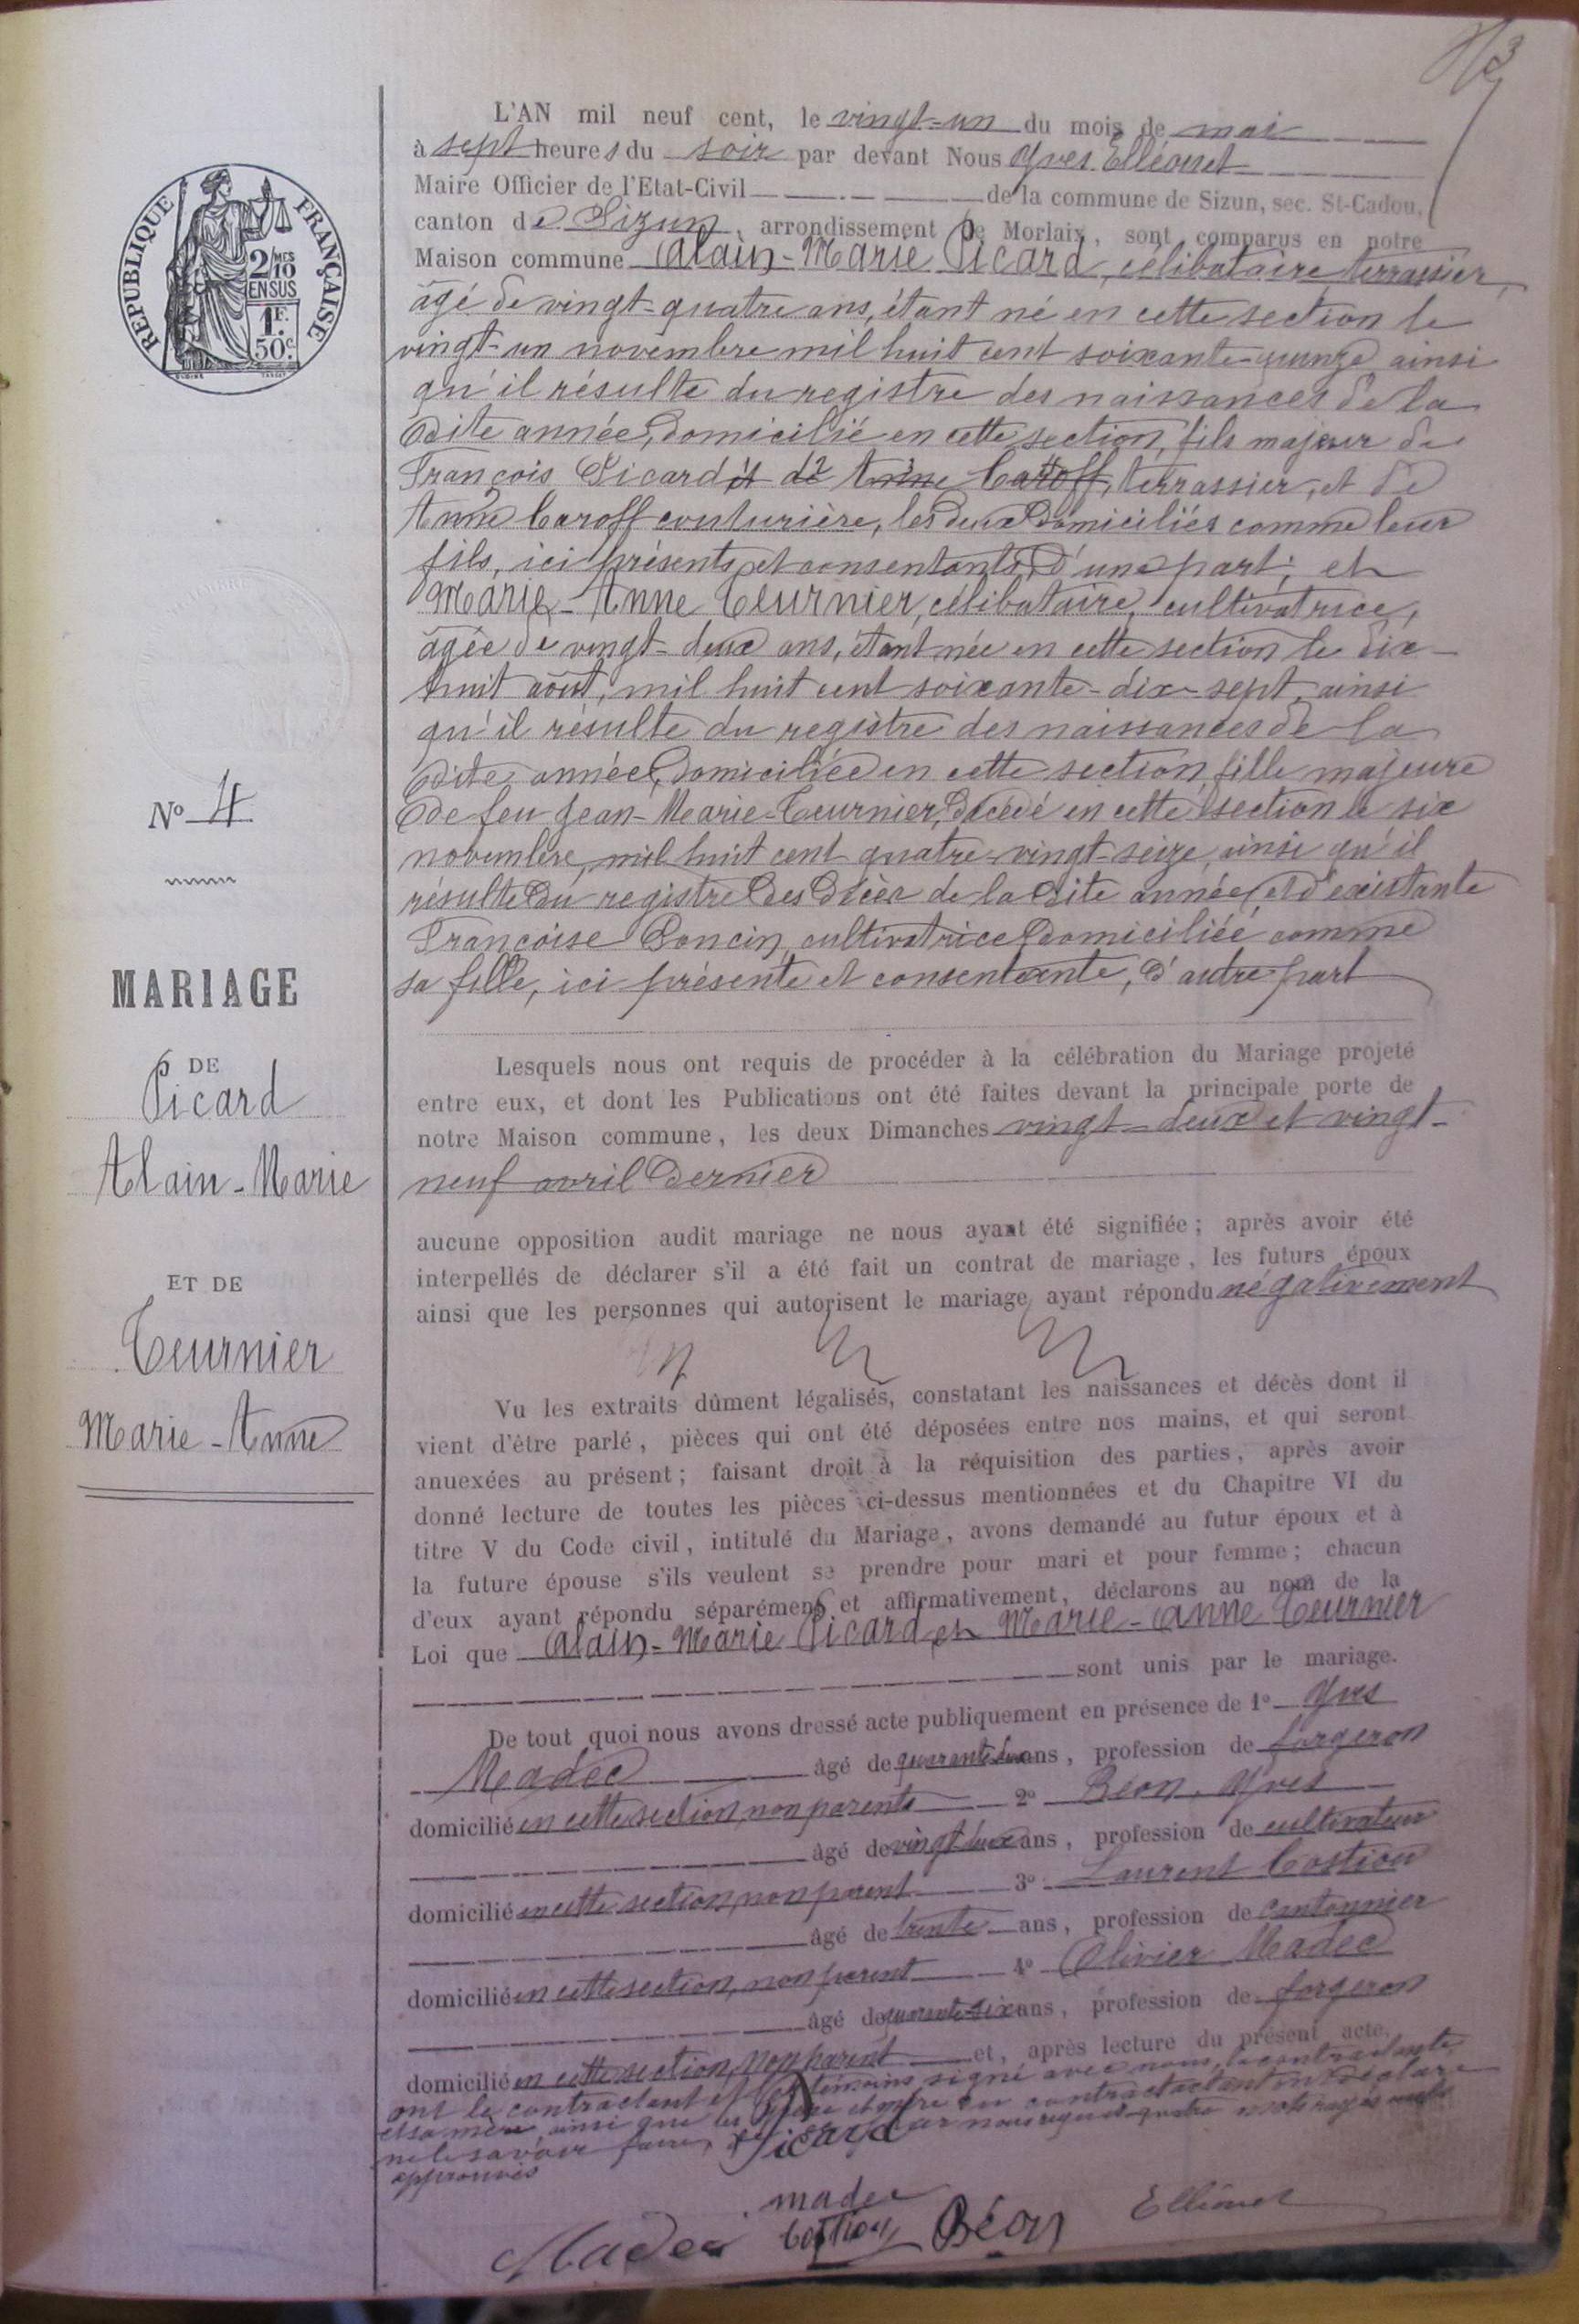 3
L'AN mil neuf cent, le vingt-un du mois de mai
à sept heures du soir par devant Nous Yves Elléouet
Maire Officier de l'Etat-Civil de la commune de Sizun, sec. St-Cadou,
canton de Sizun, arrondissement de Morlaix, sont comparus en notre
Maison commune Alain-Marie Picard, célibataire, terrassier,
âgé de vingt-quatre ans, étant né en cette section le
vingt-un novembre mil huit cent soixante-quinze ainsi
qu'il résulte du registre des naissances de la
dite année, domicilié en cette section, fils majeur de
François Picard et de Anne Caroff, terrassier, et de
Anne Caroff couturière, les deux domiciliés comme leur
fils, ici présents et consentants, d'une part; et
Marie-Anne Teurnier, célibataire, cultivatrice,
âgée de vingt-deux ans, étant née en cette section le dix-
huit août, mil huit cent soixante-dix-sept, ainsi
qu'il résulte du registre des naissances de la
dite année, domiciliée en cette section, fille majeure
de feu Jean-Marie-Teurnier, décédé en cette section le six
novembre, mil huit cent quatre-vingt-seize, ainsi qu'il
résulte du registre des décès de la dite année, et d'existante
Françoise Poncin, cultivatrice domiciliée comme
sa fille, ici présente et consentante, d'autre part
Lesquels nous ont requis de procéder à la célébration du Mariage projeté
entre eux, et dont les Publications ont été faites devant la principale porte de
notre Maison commune, les deux Dimanches vingt-deux et vingt-
neuf avril dernier
aucune opposition audit mariage ne nous ayant été signifiée; après avoir été
interpellés de déclarer s'il a été fait un contrat de mariage, les futurs époux
ainsi que les personnes qui autorisent le mariage, ayant répondu négativement
Vu les extraits dûment légalisés, constatant les naissances et décès dont il
vient d'être parlé, pièces qui ont été déposées entre nos mains, et qui seront
anuexées au présent; faisant droit à la réquisition des parties, après avoir
donné lecture de toutes les pièces ci-dessus mentionnées et du Chapitre VI du
titre V du Code civil, intitulé du Mariage, avons demandé au futur époux et à
la future épouse s'ils veulent se prendre pour mari et pour femme; chacun
d'eux ayant répondu séparément et affirmativement, déclarons au nom de la
Loi que Alain-Marie Picard et Marie-Anne Teurnier
sont unis par le mariage.
De tout quoi nous avons dressé acte publiquement en présence de 1° Yves
Madec âgé de quarante ans, profession de forgeron
domicilié en cette section, non parente 2° Béon, Yves
âgé de vingt deux ans, profession de cultivateur
domicilié en cette section, non parent 3° Laurent Costiou
âgé de trente ans, profession de cantonnier
domicilié en cette section, non parent 4° Olivier Madec
âgé de quarante-six ans, profession de forgeron
domicilié en cette section, non parent et, après lecture du présent acte,
ont le contractant et les témoins signé avec nous, la contractante
et sa mère, ainsi que les père et mère du contractant ont déclaré
ne le savoir faire, nous quatre mots rayés nuls
approuvés
Picard
madec
Madec Costiou Béon Elléouet
REPUBLIQUE FRANÇAISE
2/10MES
EN SUS
1F.
50c.
N° 4
MARIAGE
DE
Picard
Alain-Marie
ET DE
Teurnier
Marie-Anne